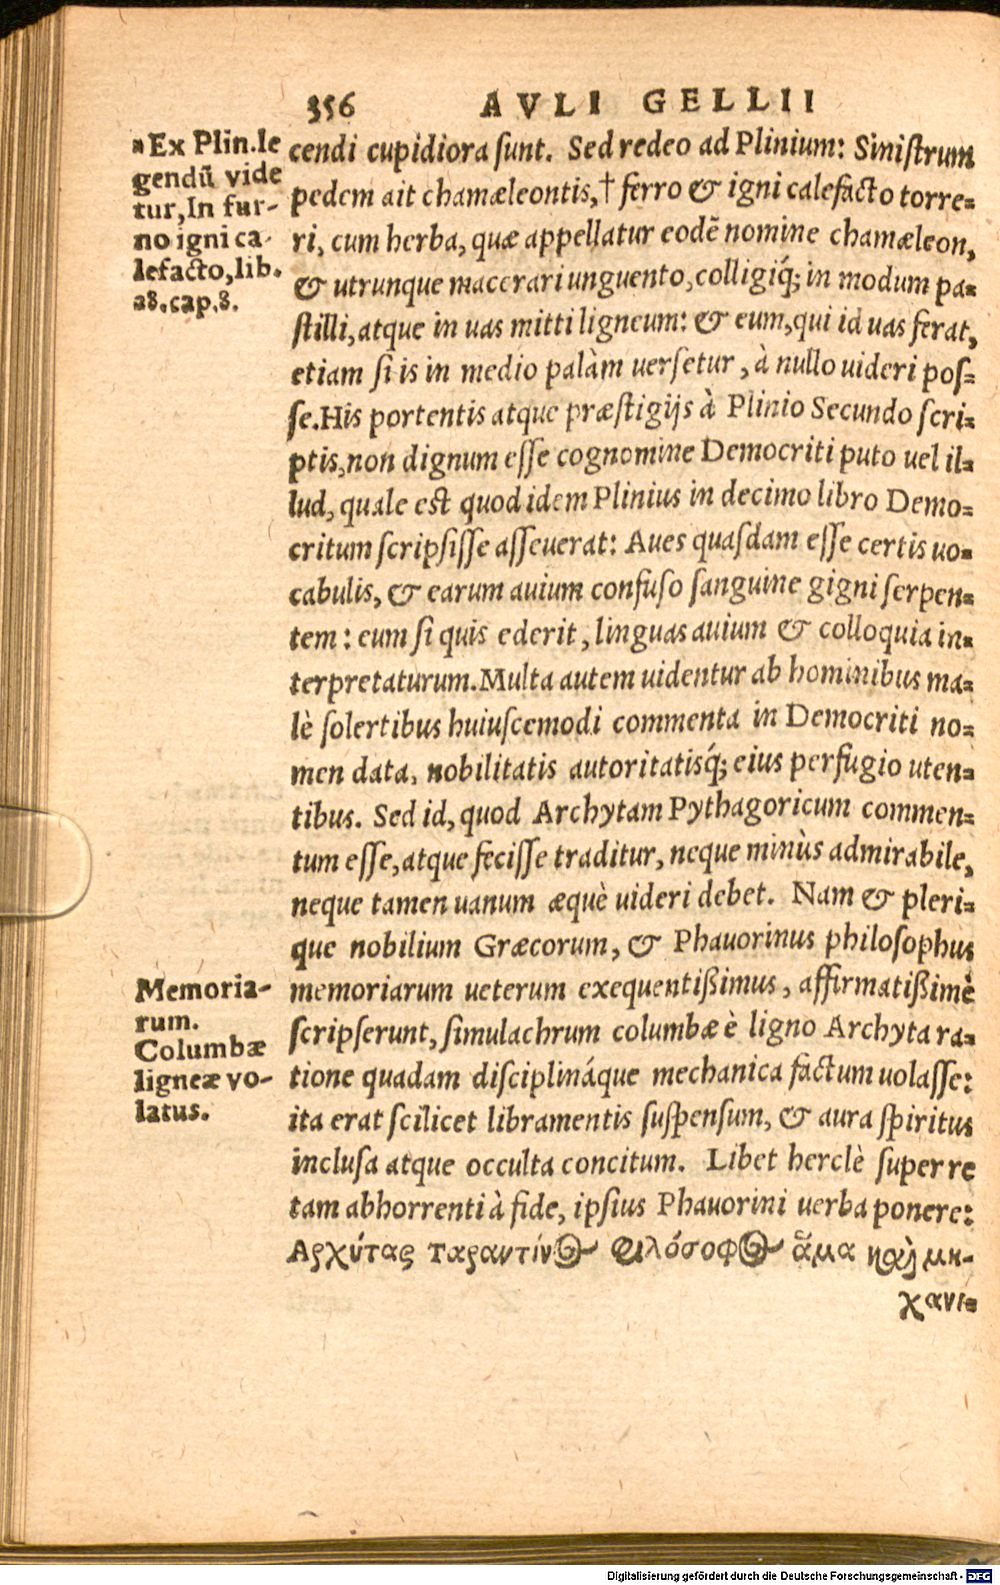 356 AVLI GELLII
"Ex Plin.le
gendũ vide
tur,In fur-
no igni ca-
lefacto,lib.
28.cap.8.
cendi cupidiora sunt. Sed redeo ad Plinium: Sinistrum
pedem ait chamæleontis,† ferro & igni calefacto torre=
ri, cum herba, quæ appellatur eodẽ nomine chamæleon,
& utrunque macerari unguento, colligiq́; in modum pa=
stilli, atque in uas mitti ligneum: & eum, qui id uas ferat,
etiam si is in medio palàm uersetur, à nullo uideri pos=
se. His portentis atque præstigijs à Plinio Secundo scri=
ptis, non dignum esse cognomine Democriti puto uel il=
lud, quale est quod idem Plinius in decimo libro Demo=
critum scripsisse asseuerat: Aues quasdam esse certis uo=
cabulis, & earum auium confuso sanguine gigni serpen=
tem: eum si quis ederit, linguas auium & colloquia in=
terpretaturum. Multa autem uidentur ab hominibus ma=
lè solertibus huiuscemodi commenta in Democriti no=
men data, nobilitatis autoritatisq́; eius perfugio uten=
tibus. Sed id, quod Archytam Pythagoricum commen=
tum esse, atque fecisse traditur, neque minùs admirabile,
neque tamen uanum æquè uideri debet. Nam & pleri=
que nobilium Græcorum, & Phauorinus philosophus
Memoria-
rum.
Columbæ
ligneæ vo-
latus.
memoriarum ueterum exequentißimus, affirmatißimè
scripserunt, simulachrum columbæ è ligno Archyta ra=
tione quadam disciplináque mechanica factum uolasse:
ita erat scilicet libramentis suspensum, & aura spiritus
inclusa atque occulta concitum. Libet herclè super re
tam abhorrenti à fide, ipsius Phauorini uerba ponere:
Αρχύτας Ταραντίνος Φιλόσοφος ἅμα καὶ μη-
χανι=
Digitalisierung gefördert durch die Deutsche Forschungsgemeinschaft - DFG